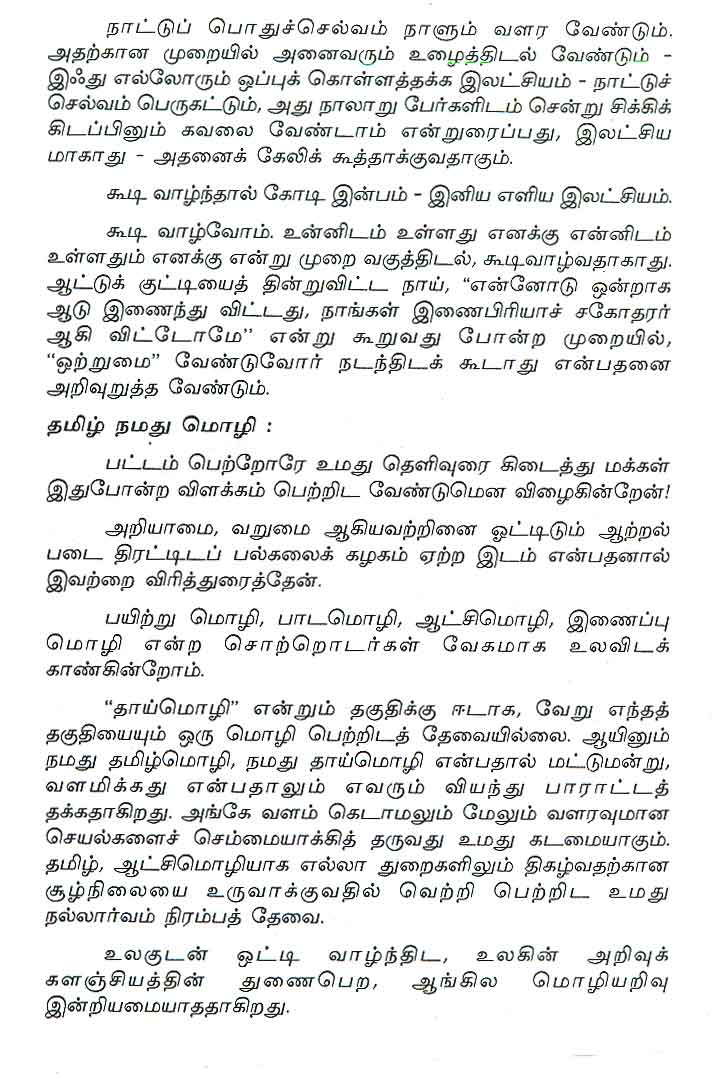 நாட்டுப் பொதுச்செல்வம் நாளும் வளர வேண்டும்.
அதற்கான முறையில் அனைவரும் உழைத்திடல் வேண்டும் –
இஃது எல்லோரும் ஒப்புக் கொள்ளத்தக்க இலட்சியம் – நாட்டுச்
செல்வம் பெருகட்டும், அது நாலாறு பேர்களிடம் சென்று சிக்கிக்
கிடப்பினும் கவலை வேண்டாம் என்றுரைப்பது, இலட்சிய
மாகாது – அதனைக் கேலிக் கூத்தாக்குவதாகும்.
கூடி வாழ்ந்தால் கோடி இன்பம் – இனிய எளிய இலட்சியம்.
கூடி வாழ்வோம். உன்னிடம் உள்ளது எனக்கு என்னிடம்
உள்ளதும் எனக்கு என்று முறை வகுத்திடல், கூடிவாழ்வதாகாது.
ஆட்டுக் குட்டியைத் தின்றுவிட்ட நாய், “என்னோடு ஒன்றாக
ஆடு இணைந்து விட்டது, நாங்கள் இணைபிரியாச் சகோதரர்
ஆகி விட்டோமே” என்று கூறுவது போன்ற முறையில்,
“ஒற்றுமை” வேண்டுவோர் நடந்திடக் கூடாது என்பதனை
அறிவுறுத்த வேண்டும்.
தமிழ் நமது மொழி :
பட்டம் பெற்றோரே உமது தெளிவுரை கிடைத்து மக்கள்
இதுபோன்ற விளக்கம் பெற்றிட வேண்டுமென விழைகின்றேன்!
அறியாமை, வறுமை ஆகியவற்றினை ஓட்டிடும் ஆற்றல்
படை திரட்டிடப் பல்கலைக் கழகம் ஏற்ற இடம் என்பதனால்
இவற்றை விரித்துரைத்தேன்.
பயிற்று மொழி, பாடமொழி, ஆட்சிமொழி, இணைப்பு
மொழி என்ற சொற்றொடர்கள் வேகமாக உலவிடக்
காண்கின்றோம்.
“தாய்மொழி” என்றும் தகுதிக்கு ஈடாக, வேறு எந்தத்
தகுதியையும் ஒரு மொழி பெற்றிடத் தேவையில்லை. ஆயினும்
நமது தமிழ்மொழி, நமது தாய்மொழி என்பதால் மட்டுமன்று,
வளமிக்கது என்பதாலும் எவரும் வியந்து பாராட்டத்
தக்கதாகிறது. அங்கே வளம் கெடாமலும் மேலும் வளரவுமான
செயல்களைச் செம்மையாக்கித் தருவது உமது கடமையாகும்.
தமிழ், ஆட்சிமொழியாக எல்லா துறைகளிலும் திகழ்வதற்கான
சூழ்நிலையை உருவாக்குவதில் வெற்றி பெற்றிட உமது
நல்லார்வம் நிரம்பத் தேவை.
உலகுடன் ஒட்டி வாழ்ந்திட, உலகின் அறிவுக்
களஞ்சியத்தின் துணைபெற, ஆங்கில மொழியறிவு
இன்றியமையாததாகிறது.